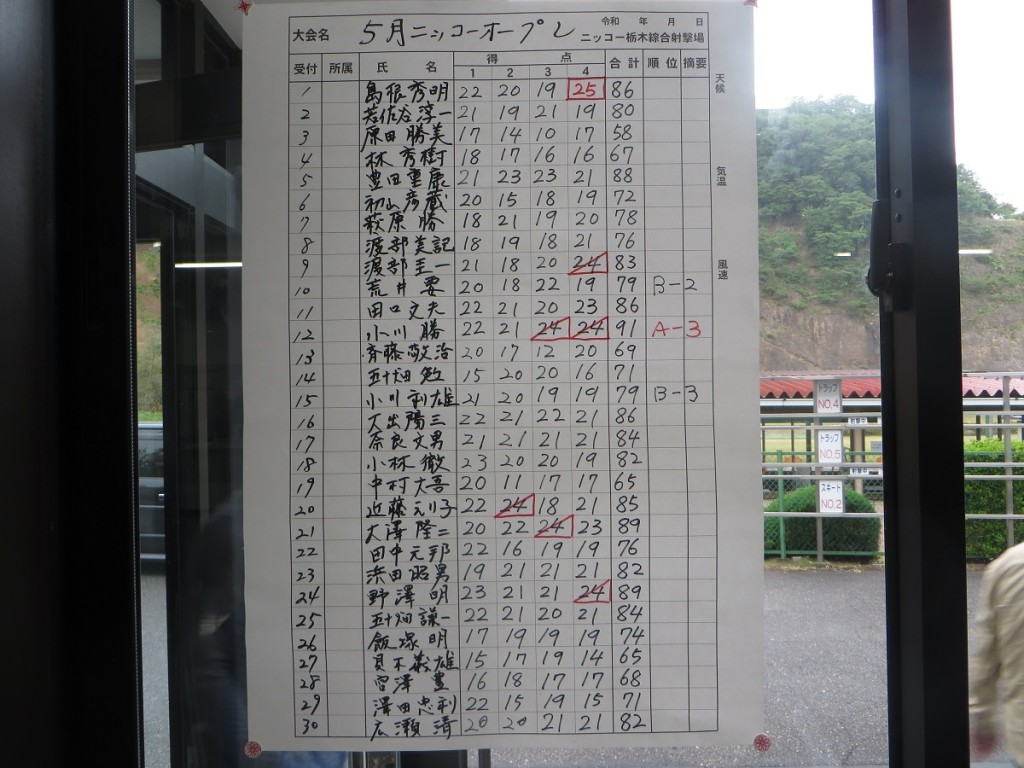 大会名 5月ニッコーオープン 令和 年 月 日
ニッコー栃木綜合射撃場
受付 所属 氏 名 得 点 合計 順位 摘要
1 2 3 4
1 島根秀明 22 20 19 25 86
2 若佐谷淳一 21 19 21 19 80
3 原田勝美 17 14 10 17 58
4 林秀樹 18 17 16 16 67
5 豊田重康 21 23 23 21 88
6 初山彦蔵 20 15 18 19 72
7 萩原勝 18 21 19 20 78
8 渡部美記 18 19 18 21 76
9 渡部圭一 21 18 20 24 83
10 荒井要 20 18 22 19 79 B-2
11 田口文夫 22 21 20 23 86
12 小川勝 22 21 24 24 91 A-3
13 斉藤敬治 20 17 12 20 69
14 五十畑勉 15 20 20 16 71
15 小川利雄 21 20 19 19 79 B-3
16 大出陽三 22 21 22 21 86
17 奈良文男 21 21 21 21 84
18 小林徹 23 20 20 19 82
19 中村大吾 20 11 17 17 65
20 近藤元利子 22 24 18 21 85
21 大澤隆二 20 22 24 23 89
22 田中元邦 22 16 19 19 76
23 浜田昭男 19 21 21 21 82
24 野澤明 23 21 21 24 89
25 五十畑謙一 22 21 20 21 84
26 飯塚明 17 19 19 19 74
27 義雄 15 17 19 14 65
28 宮澤豊 16 18 17 17 68
29 澤田忠利 22 15 19 15 71
30 広瀬清 20 20 21 21 82
天候
気温
風速
トラップ
NO.4
トラップ
NO.5
スキート
NO.2